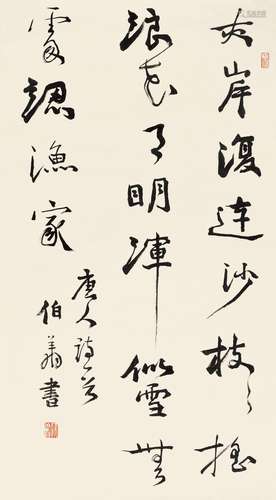 夾岸復連沙枝々搖
浪花月明渾似雪無
處認漁家
唐人詩意
伯翔書